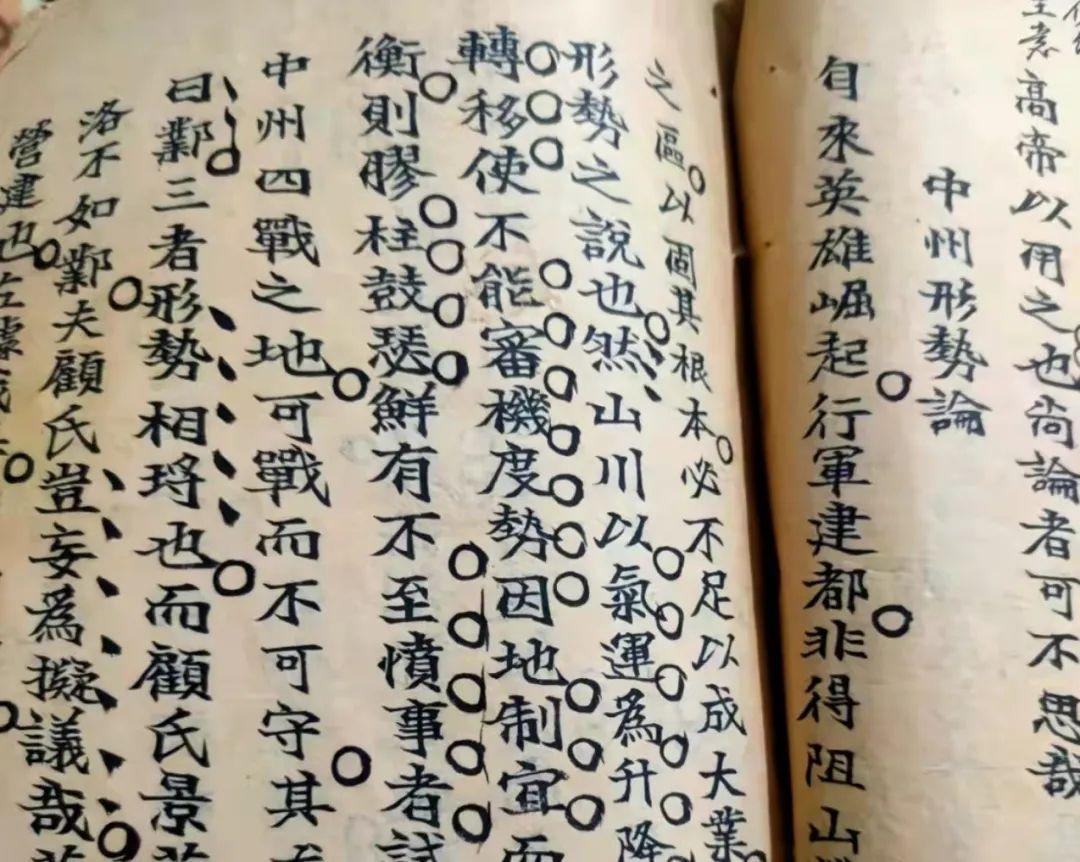 高帝以用之也尚論者可不思哉
中州形勢論
自來英雄崛起行軍建都非得阻山
之區以固其根本必不足以成大業
形勢之說也然山川以氣運爲升降
轉移使不能審機度勢因地制宜而
衡則膠柱鼓瑟鮮有不至憤事者試
中州四戰之地可戰而不可守其
曰鄴三者形勢相埒也而顧氏景
洛不如鄴夫顧氏豈妄爲擬議哉
營建也左據